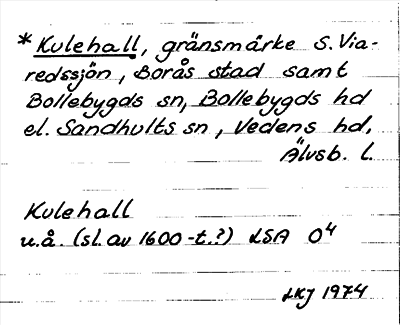 *Kulehall, gränsmärke S. Via-
redssjön, Borås stad samt
Bollebygds sn, Bollebygds hd
el. Sandhults sn, Vedens hd,
Älvsb. l.
Kulehall
u.å. (sl. av 1600-t.?) LSA O4
LKJ 1974